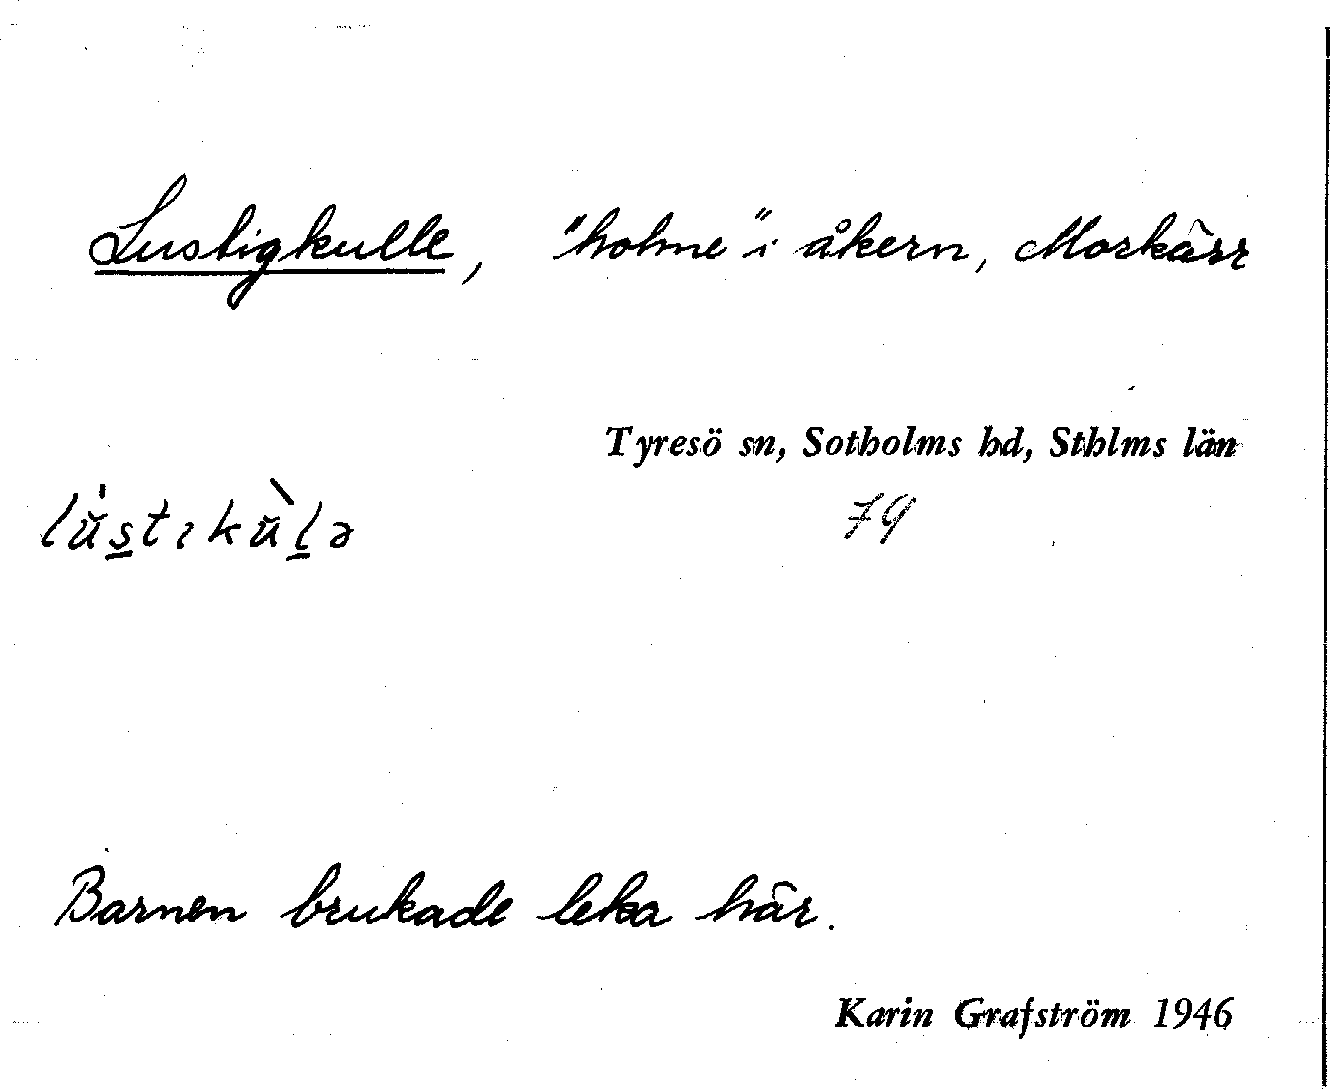 Lustigkulle, "holme" i åkern, Morkärr
Tyresö sn, Sotholms hd, Sthlms län
79
lu̍stɩkùlə
Barnen brukade leka här.
Karin Grafström 1946